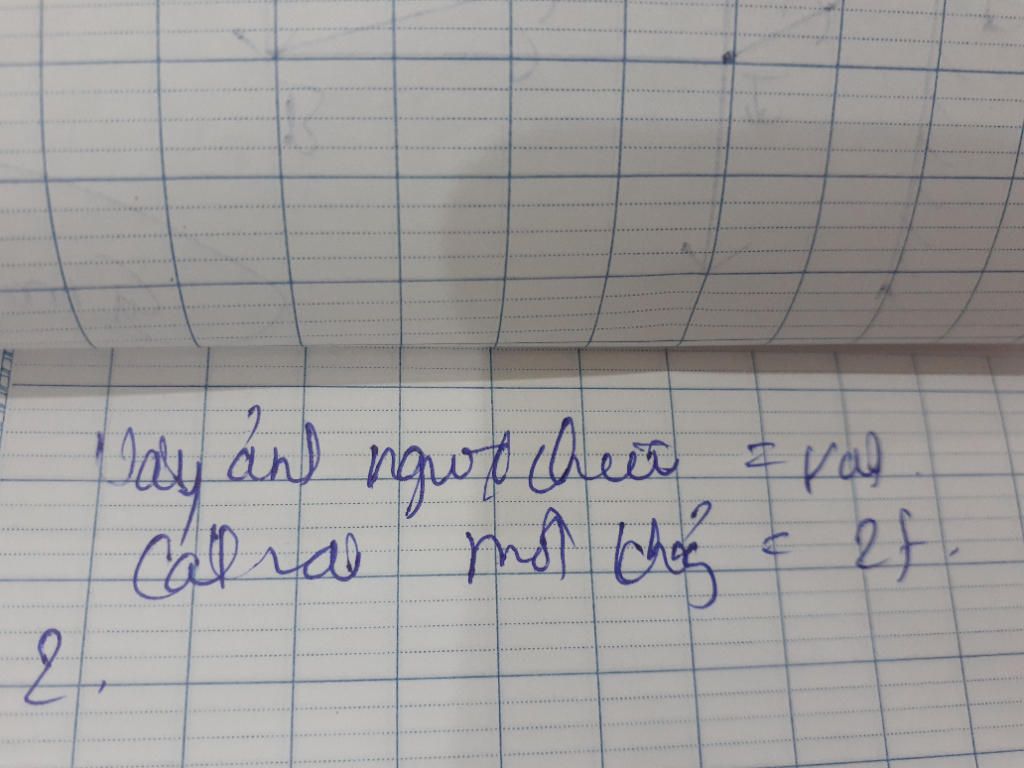 Vậy ảnh ngược chiều = vật
Cách vật một khoảng = 2f.
2.